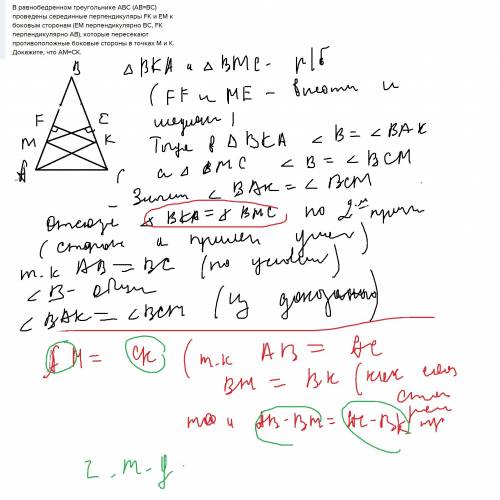 В равнобедренном треугольнике ABC (AB=BC)
проведены серединные перпендикуляры FK и EM к
боковым сторонам (EM перпендикулярно BC, FK
перпендикулярно AB), которые пересекают
противоположные боковые стороны в точках M и K.
Докажите, что AM=CK.
B
F
E
M
K
A
C
△ BKA и △ BMC - р/б
( и ME - высоты и
медианы)
Тогда в △ BKA ∠ B = ∠ BAK
а △ BMC ∠ B = ∠ BCM
Значит ∠ BAK = ∠ BCM
Отсюда △ BKA = △ BMC по 2-м
(сторона и прилеж углам)
т.к AB = BC (по условию)
∠ B - общий
∠ BAK = ∠ BCM (из доказанного)
AM = CK (т.к AB =
BM = BK (как
AB - BM =
ч.т.д.